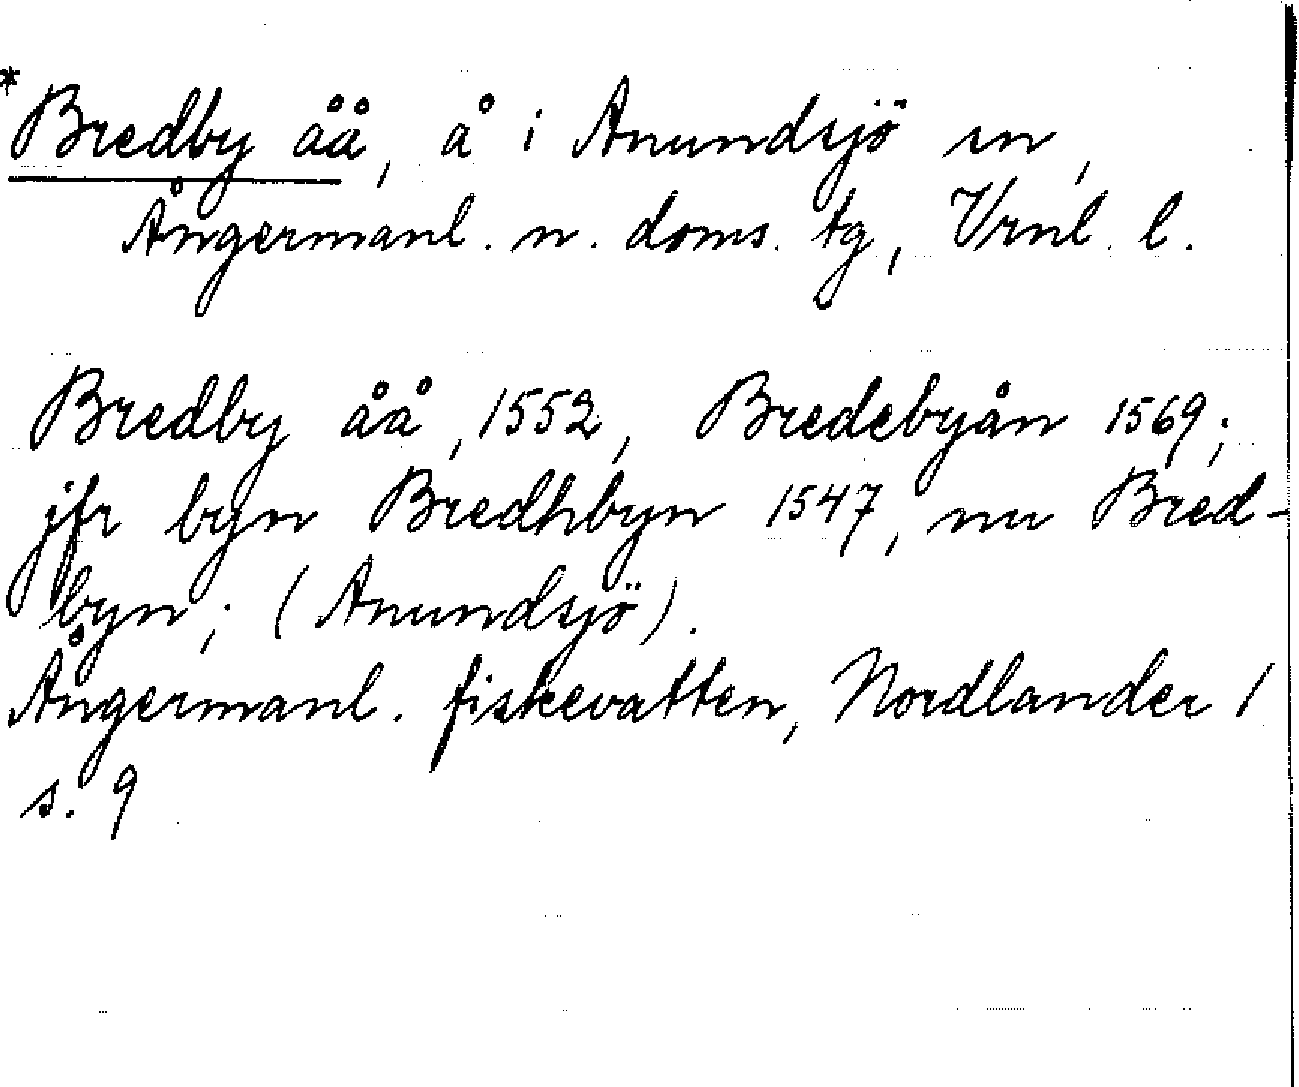 *Bredby åå, å i Anundsjö sn,
Ångermanl. n. doms. tg, Vrnl. l.
Bredby åå, 1552, Bredebyån 1569;
jfr byn Bredhbyn 1547, nu Bred-
byn; (Anundsjö).
Ångermanl. fiskevatten, Nordlander 1
s. 9